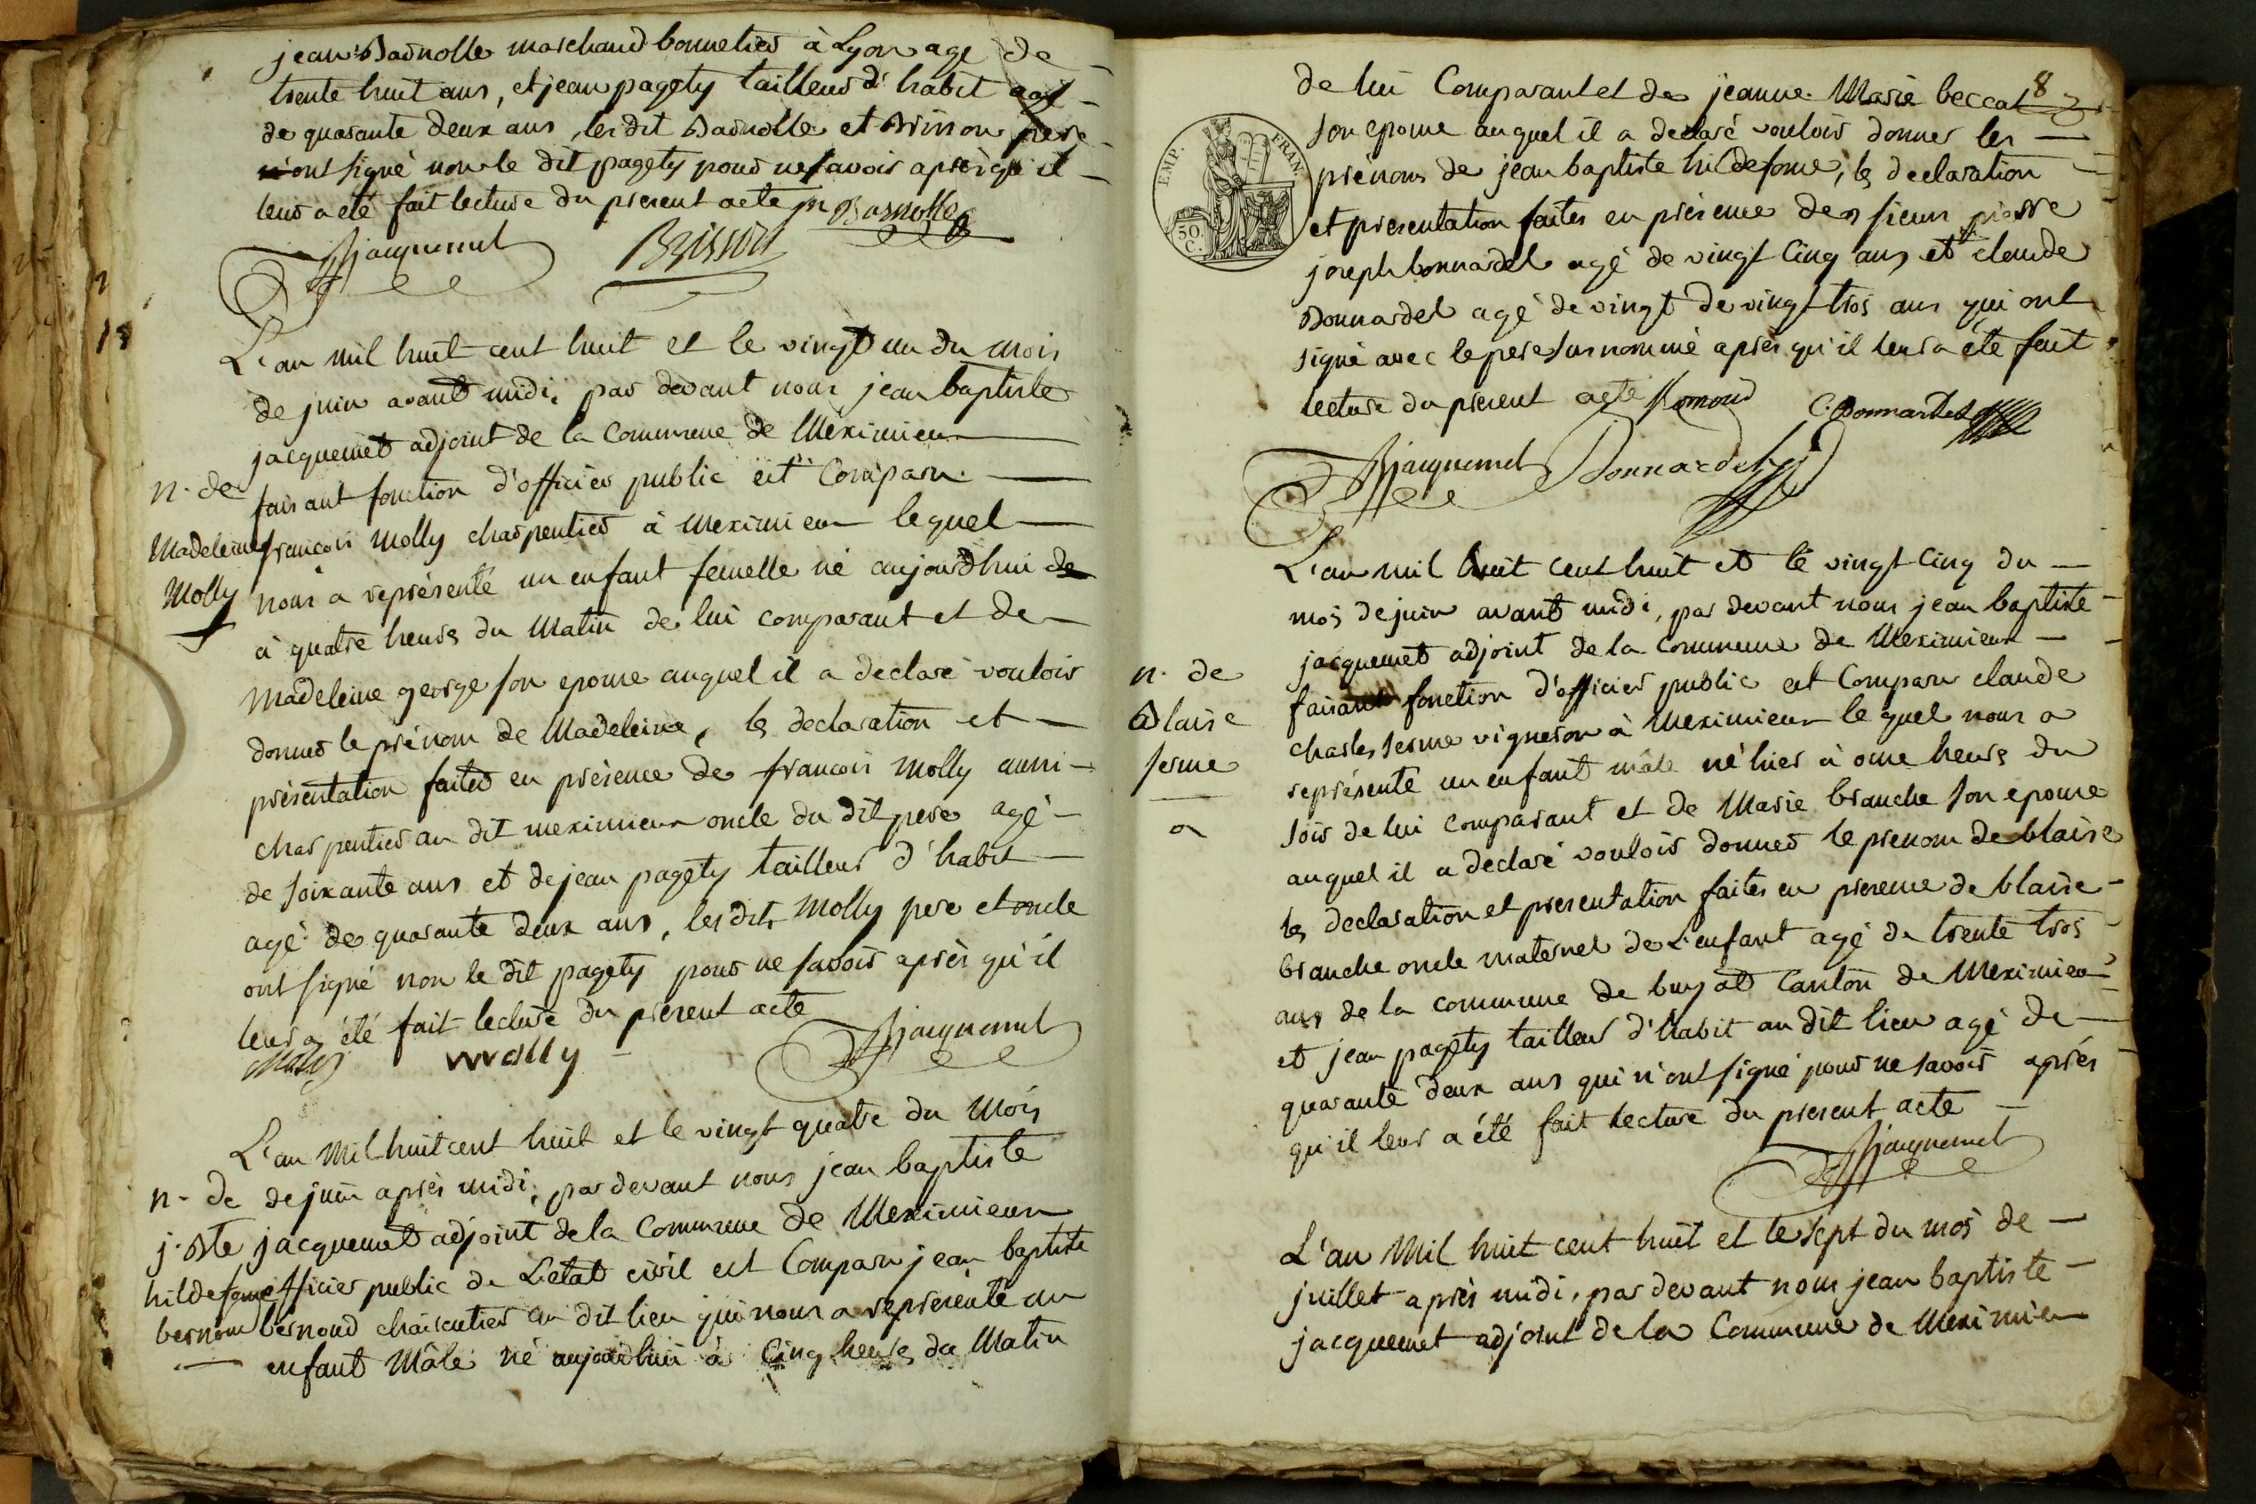 jean Barnolle marchand bonnetier à Lyon agé de
trente huit ans, et jean pagety tailleur d'habit agé
de quarante deux ans, les dit Barnolle et Brisson pere
n'ont signé non le dit pagety pour ne savoir après qu'il
leur a été fait lecture du present acte jn Barnolle
JBjacquemet Brisson
L'an mil huit cent huit et le vingt un du mois
de juin avant midi, par devant nous jean baptiste
jacquemet adjoint de la Commune de Méximieux
n. de faisant fonction d'officier public est Comparu
Madeleine françois Molly charpentier à Meximieux lequel
Molly nous a représenté un enfant femelle né aujourdhui de
à quatre heures du Matin de lui comparant et de
Madeleine george son epouse auquel il a declaré vouloir
donner le prénom de Madeleine, les declaration et
présentation faites en présence de françois Molly aussi
charpentier au dit meximieux oncle du dit pere agé
de soixante ans et de jean pagety tailleur d'habit
agé de quarante deux ans, les dits Molly pere et oncle
ont signé non le dit pagety pour ne savoir après qu'il
leur a été fait lecture du présent acte
Molly Molly JBjacquemet
L'an Mil huit cent huit et le vingt quatre du Mois
n. de de juin après midi, par devant nous jean baptiste
j. Bte jacquemet adjoint de la Commune de Meximieux
hildefonse officier public de L'etat civil est Comparu jean baptiste
bernoud bernoud chaircutier au dit lieu qui nous a représenté un
enfant Mâle né aujourdhui à Cinq heures du Matin
8
de lui Comparant et de jeanne Marie beccat
son epouse auquel il a declaré vouloir donner les
prénoms de jean baptiste hildefonse, les declaration
et presentation faites en présence des sieurs pierre
joseph bonnardel agé de vingt Cinq ans et claude
Bonnardel agé de vingt de vingt trois ans qui ont
signé avec le pere surnommé après qu'il leur a été fait
lecture du present acte C. Bonnardel
JBjacquemet Bonnardel
EMP. FRAN.
50 C.
L'an mil huit cent huit et le vingt Cinq du
mois de juin avant midi, par devant nous jean baptiste
jacquemet adjoint de la Commune de Meximieux
n. de faisant fonction d'officier public est Comparu claude
Blaise charles serme vigneron à Meximieux le quel nous a
serme représenté un enfant mâle né hier à onze heures du
soir de lui comparant et de Marie branche son epouse
auquel il a declaré vouloir donner le prenom de blaise
les declaration et presentation faites en presence de blaise
branche oncle maternel de L'enfant agé de trente trois
ans de la commune de Canton de Meximieux
et jean pagety tailleur d'habit au dit lieu agé de
quarante deux ans qui n'ont signé pour ne savoir après
qu'il leur a été fait lecture du present acte
JBjacquemet
L'an Mil huit cent huit et le sept du mois de
juillet après midi, par devant nous jean baptiste
jacquemet adjoint de la Commune de Meximieux